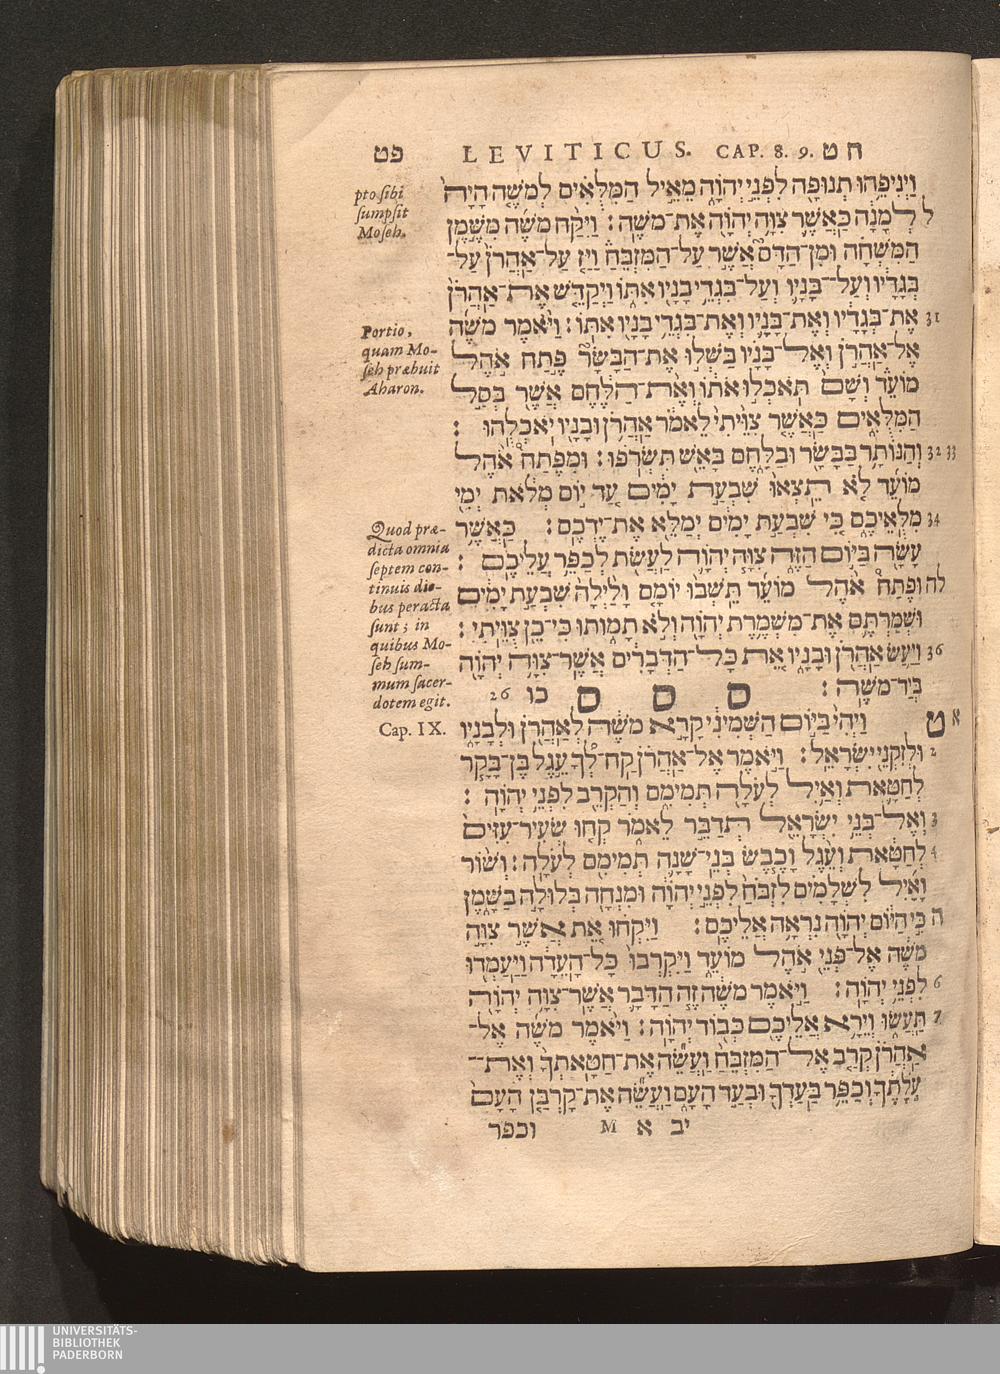 פט LEVITICUS. CAP. 8. 9. ח ט
pto sibi
sumpsit
Moseh.
Portio,
quam Mo-
seh præbuit
Aharon.
Quod præ-
dicta omnia
septem con-
tinuis die-
bus peracta
sunt; in
quibus Mo-
seh sum-
mum sacer-
dotem egit.
Cap. IX.
וַיְנִיפֵהוּ תְנוּפָה לִפְנֵי יְהוָה מֵאֵיל הַמִּלֻּאִים לְמֹשֶׁה הָיָה
ל לְמָנָה כַּאֲשֶׁר צִוָּה יְהוָה אֶת־מֹשֶׁה׃ וַיִּקַּח מֹשֶׁה מִשֶּׁמֶן
הַמִּשְׁחָה וּמִן־הַדָּם אֲשֶׁר עַל־הַמִּזְבֵּחַ וַיַּז עַל־אַהֲרֹן עַל־
בְּגָדָיו וְעַל־בָּנָיו וְעַל־בִּגְדֵי בָנָיו אִתּוֹ וַיְקַדֵּשׁ אֶת־אַהֲרֹן
31 אֶת־בְּגָדָיו וְאֶת־בָּנָיו וְאֶת־בִּגְדֵי בָנָיו אִתּוֹ׃ וַיֹּאמֶר מֹשֶׁה
אֶל־אַהֲרֹן וְאֶל־בָּנָיו בַּשְּׁלוּ אֶת־הַבָּשָׂר פֶּתַח אֹהֶל
מוֹעֵד וְשָׁם תֹּאכְלוּ אֹתוֹ וְאֶת־הַלֶּחֶם אֲשֶׁר בְּסַל
הַמִּלֻּאִים כַּאֲשֶׁר צִוֵּיתִי לֵאמֹר אַהֲרֹן וּבָנָיו יֹאכְלֻהוּ ׃
32 33 וְהַנּוֹתָר בַּבָּשָׂר וּבַלָּחֶם בָּאֵשׁ תִּשְׂרֹפוּ׃ וּמִפֶּתַח אֹהֶל
מוֹעֵד לֹא תֵצְאוּ שִׁבְעַת יָמִים עַד יוֹם מְלֹאת יְמֵי
34 מִלֻּאֵיכֶם כִּי שִׁבְעַת יָמִים יְמַלֵּא אֶת־יֶדְכֶם׃ כַּאֲשֶׁר
עָשָׂה בַּיּוֹם הַזֶּה צִוָּה יְהוָה לַעֲשֹׂת לְכַפֵּר עֲלֵיכֶם ׃
לה וּפֶתַח אֹהֶל מוֹעֵד תֵּשְׁבוּ יוֹמָם וָלַיְלָה שִׁבְעַת יָמִים
וּשְׁמַרְתֶּם אֶת־מִשְׁמֶרֶת יְהוָה וְלֹא תָמוּתוּ כִּי־כֵן צֻוֵּיתִי׃
36 וַיַּעַשׂ אַהֲרֹן וּבָנָיו אֵת כָּל־הַדְּבָרִים אֲשֶׁר־צִוָּה יְהוָה
בְּיַד־מֹשֶׁה׃ ס ס ס כו 26
א ט וַיְהִי בַּיּוֹם הַשְּׁמִינִי קָרָא מֹשֶׁה לְאַהֲרֹן וּלְבָנָיו
2 וּלְזִקְנֵי יִשְׂרָאֵל׃ וַיֹּאמֶר אֶל־אַהֲרֹן קַח־לְךָ עֵגֶל בֶּן־בָּקָר
לְחַטָּאת וְאַיִל לְעֹלָה תְּמִימִם וְהַקְרֵב לִפְנֵי יְהוָה ׃
3 וְאֶל־בְּנֵי יִשְׂרָאֵל תְּדַבֵּר לֵאמֹר קְחוּ שְׂעִיר־עִזִּים
4 לְחַטָּאת וְעֵגֶל וָכֶבֶשׂ בְּנֵי־שָׁנָה תְּמִימִם לְעֹלָה׃ וְשׁוֹר
וָאַיִל לִשְׁלָמִים לִזְבֹּחַ לִפְנֵי יְהוָה וּמִנְחָה בְּלוּלָה בַשָּׁמֶן
ה כִּי הַיּוֹם יְהוָה נִרְאָה אֲלֵיכֶם׃ וַיִּקְחוּ אֵת אֲשֶׁר צִוָּה
מֹשֶׁה אֶל־פְּנֵי אֹהֶל מוֹעֵד וַיִּקְרְבוּ כָּל־הָעֵדָה וַיַּעַמְדוּ
6 לִפְנֵי יְהוָה׃ וַיֹּאמֶר מֹשֶׁה זֶה הַדָּבָר אֲשֶׁר־צִוָּה יְהוָה
7 תַּעֲשׂוּ וְיֵרָא אֲלֵיכֶם כְּבוֹד יְהוָה׃ וַיֹּאמֶר מֹשֶׁה אֶל־
אַהֲרֹן קְרַב אֶל־הַמִּזְבֵּחַ וַעֲשֵׂה אֶת־חַטָּאתְךָ וְאֶת־
עֹלָתֶךָ וְכַפֵּר בַּעַדְךָ וּבְעַד הָעָם וַעֲשֵׂה אֶת־קָרְבַּן הָעָם
יב א M וכפר
UNIVERSITÄTS-
BIBLIOTHEK
PADERBORN